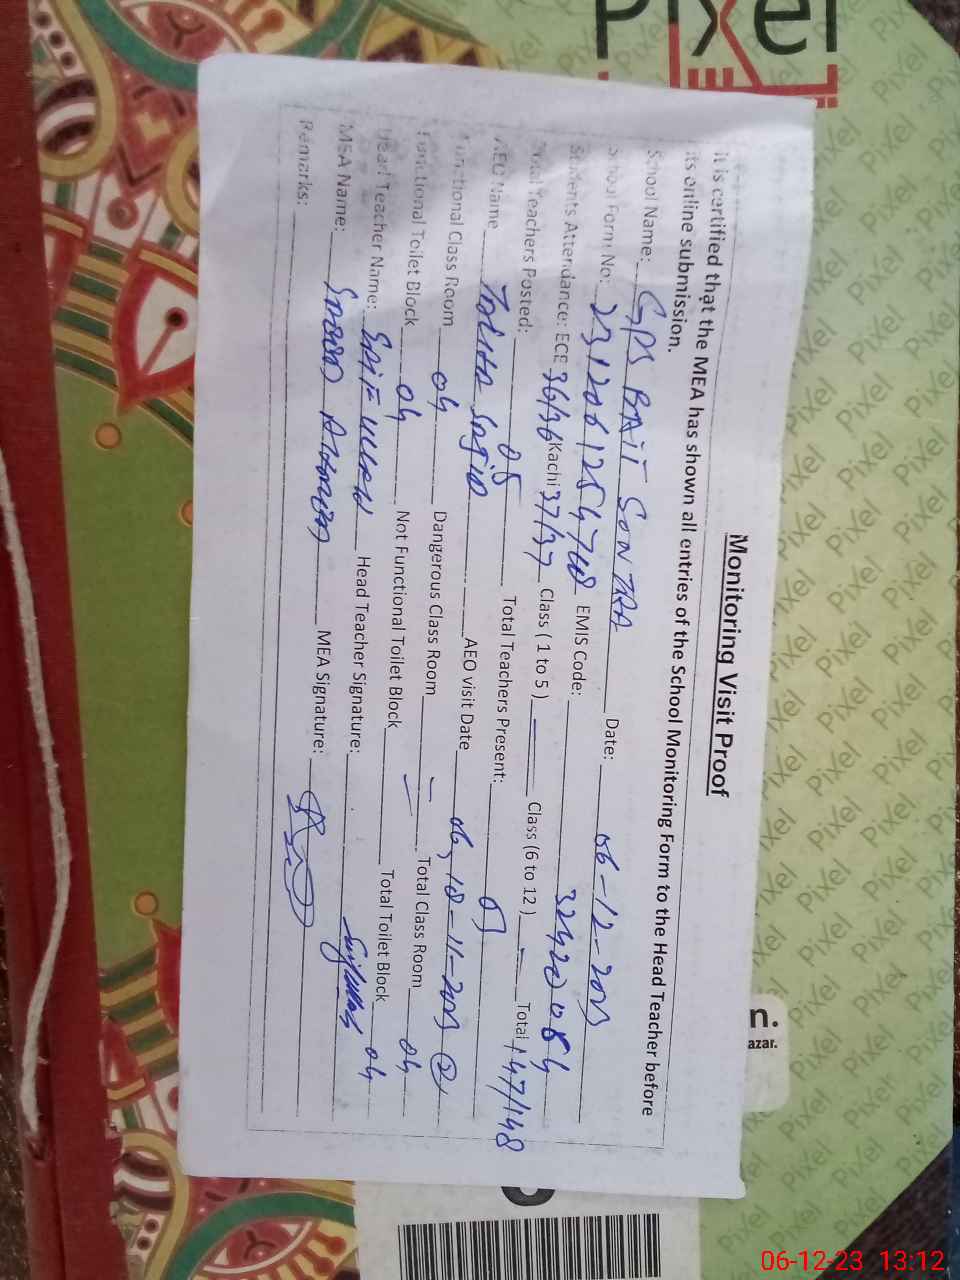 Monitoring Visit Proof
it is certified that the MEA has shown all entries of the School Monitoring Form to the Head Teacher before
its online submission.
School Name: GPS BAIT SONTRA Date: 06-12-2023
School Form No: 231206125474 EMIS Code: 32420084
Students Attendance: ECE 36/36 Kachi 37/37 Class ( 1 to 5 ) — Class (6 to 12 ) — Total 147/148
Total Teachers Posted: 05 Total Teachers Present: 05
AEO Name AEO visit Date 06, 18-11-2023 (2)
Functional Class Room 04 Dangerous Class Room — Total Class Room 04
Functional Toilet Block 04 Not Functional Toilet Block — Total Toilet Block 04
Head Teacher Name: SAIF ULLAH Head Teacher Signature: Saifullah
MEA Name: MEA Signature:
Remarks:
Pixel
n.
azar.
06-12-23 13:12